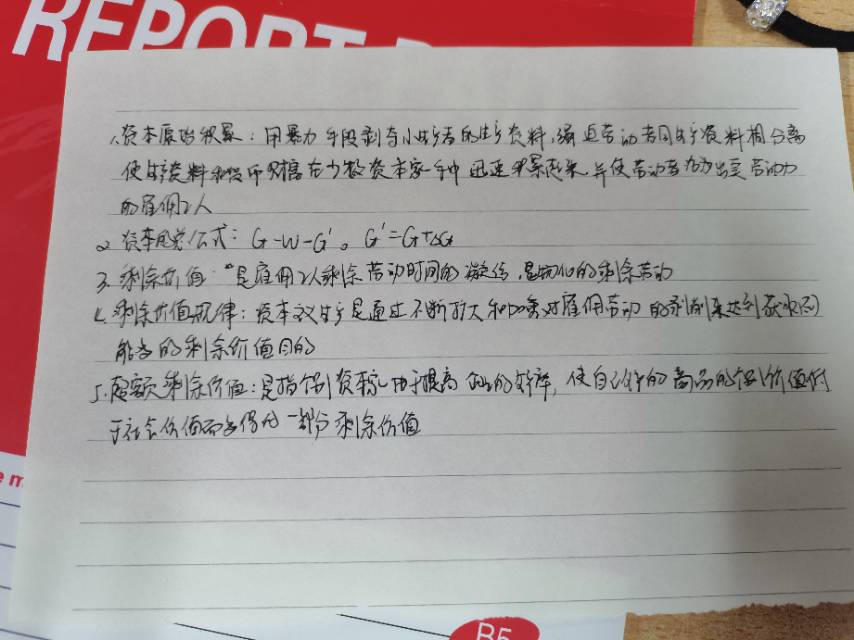 REPORT
1.资本原始积累：用暴力手段剥夺小生产者的生产资料，强迫劳动者同生产资料相分离
使生产资料和货币财富在少数资本家手中迅速积累起来，并使劳动者成为出卖劳动力
的雇佣工人
2.资本总公式：G-W-G'。G'=G+△G
3.剩余价值："是雇佣工人剩余劳动时间的凝结，是物化的剩余劳动
4.剩余价值规律：资本主义生产是通过不断扩大和加重对雇佣劳动的剥削来达到获取
能多的剩余价值目的
5.超额剩余价值：是指个别资本家由于提高的生产率，使自己生产的商品的个别价值低
于社会价值而多得的一部分剩余价值
e m
B5